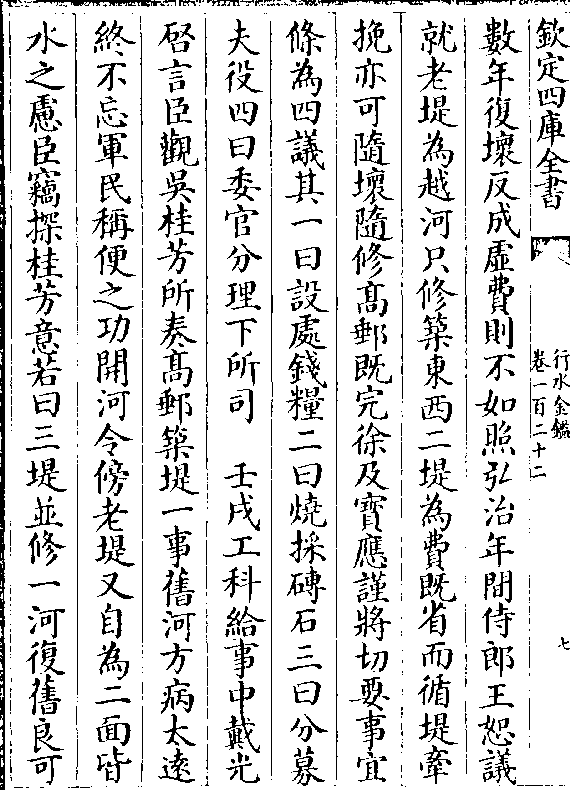 欽定四庫全書
行水金鑑
卷一百二十二
七
數年復壞反成虛費則不如照弘治年間侍郎王恕議
就老堤為越河只修築東西二堤為費既省而循堤牽
挽亦可隨壞隨修髙郵既完徐及寳應謹將切要事宜
條為四議其一曰設處錢糧二曰燒採磚石三曰分募
夫役四曰委官分理下所司　壬戌工科給事中戴光
啓言臣觀吳桂芳所奏髙郵築堤一事舊河方病太逺
終不忘軍民稱便之功開河令傍老堤又自為二面皆
水之慮臣竊探桂芳意若曰三堤並修一河復舊良可